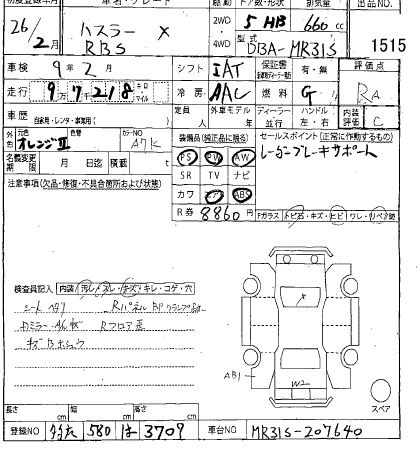 初度登録年月 車名・グレード 駆動 ドア数・形状 排気量 出品NO.
26/2月 ハスラー X 2WD 5 HB 660cc
RBS 4WD 型式 DBA-MR31S 1515
車検 9年2月 シフト IAT 保証書 有・無 評価点
走行 9万7千218 キロ マイル 冷房 AAC 燃料 G RA
車歴 自家用・レンタ・事業用( ) 定員 外車モデル 年 ディーラー 並行 ハンドル 左・右 内装評価 C
外色 元色 オレンジⅡ カラーNO A7K 装備品(純正品に限る) セールスポイント(正常に作動するもの)
名義変更期限 月 日迄 積載 t PS PW AW レーダーブレーキサポート
注意事項(欠品・修復・不具合箇所および状態) SR TV ナビ
カワ ABS
R券 8860 Fガラス トビ石・キズ・ヒビ ワレ・リペア
検査員記入 内装 汚レ・スレ・キズ・キレ・コゲ・穴
シートヘタリ Rパネル BP
Rフロア
X
AB1
W2
スペア
長さ cm 幅 cm 高さ cm
登録NO 580 は 3709 車台NO MR31S-207640